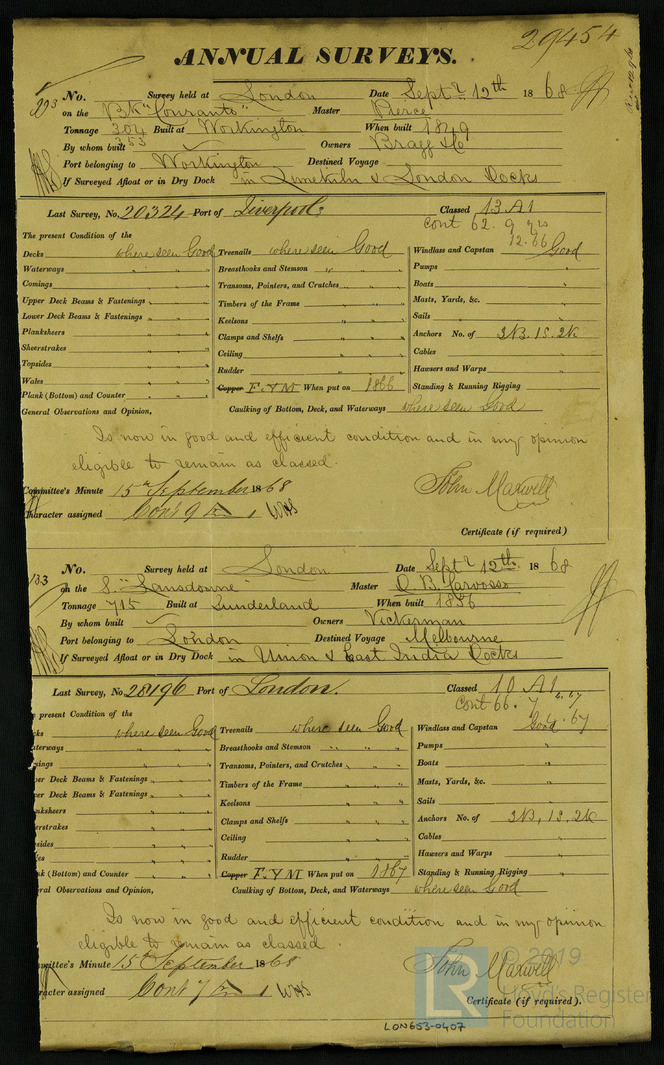 29454
ANNUAL SURVEYS.
No. Survey held at London Date Septr 12th 1868
on the Bk "Couranto" Master Pierce
Tonnage 304 Built at Workington When built 1849
353
By whom built Owners Bragg &Co
Port belonging to Workington Destined Voyage
If Surveyed Afloat or in Dry Dock in Limekiln & London Docks
Last Survey, No. 20324 Port of Liverpool: Classed 13 A1
Cont 62. 9 yrs
12.66
The present Condition of the
Decks where seen Good Treenails where seen Good Windlass and Capstan Good
Waterways " " Breasthooks and Stemson " " " Pumps "
Comings " " Transoms, Pointers, and Crutches " " Boats "
Upper Deck Beams & Fastenings " " Timbers of the Frame " " " Masts, Yards, &c. "
Lower Deck Beams & Fastenings " " Keelsons " " " Sails "
Planksheers " " Clamps and Shelfs " " " Anchors No. of 3B. 1S. 2K
Sheerstrakes " " Ceiling " " " Cables "
Topsides " " Rudder " " " Hawsers and Warps "
Wales " " Copper F.YM When put on 1866 Standing & Running Rigging "
Plank (Bottom) and Counter " "
General Observations and Opinion, Caulking of Bottom, Deck, and Waterways where seen Good
Is now in good and efficient condition and in my opinion
eligible to remain as classed.
Committee's Minute 15th September 1868 John Maxwell
Character assigned Cont 9
Certificate (if required)
No. Survey held at London Date Septr 12th 1868
on the S. "Lansdowne" Master
Tonnage 715 Built at Sunderland When built 1856
By whom built Owners Vickerman
Port belonging to London Destined Voyage Melbourne
If Surveyed Afloat or in Dry Dock in Union & East India Docks
Last Survey, No. 28196 Port of London. Classed 10 A1
Cont 66. 7
present Condition of the
where seen Good Treenails where seen Good Windlass and Capstan Good
aterways " " Breasthooks and Stemson " " " Pumps "
mings " " Transoms, Pointers, and Crutches " " " Boats "
per Deck Beams & Fastenings " " Timbers of the Frame " " " Masts, Yards, &c. "
wer Deck Beams & Fastenings " " Keelsons " " " Sails "
nksheers " " Clamps and Shelfs " " " Anchors No. of 3B, 1S. 2K
erstrakes " " Ceiling " " " Cables "
sides " " Rudder " " " Hawsers and Warps "
les " " Copper F.YM When put on 1867 Standing & Running Rigging "
nk (Bottom) and Counter " "
ral Observations and Opinion, Caulking of Bottom, Deck, and Waterways where seen Good
Is now in good and efficient condition and in my opinion
eligible to remain as classed.
mmittee's Minute 15th September 1868 John Maxwell
racter assigned Cont 7
Certificate (if required).
LR © 2019
Lloyd's Register
Foundation
LON653-0407